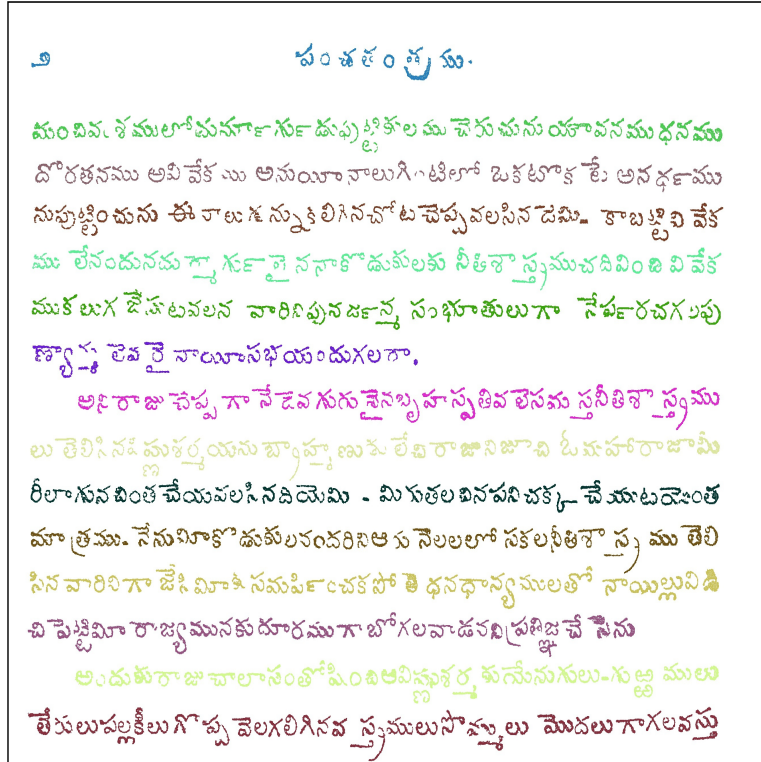 ౨ పంచతంత్రము.
మంచివంశములోమనూర్ణగుర్ణడుపుట్టికులము చెరుచును యౌవనము ధనము
దొరతనము అవివేకము అనుయీనాలుగింటిలో ఒకటొకటే అనర్థము
నుపుట్టించును ఈ నాలుగున్నుకలిగినచోట చెప్పవలసినదేమి- కాబట్టివివేక
ము లేనందున నాకొడుకులకు నీతిశాస్త్రముచదివించి వివేక
ముకలుగ జేసుటవలన వారినిపునర్జన్మ సంభూతులుగా నేర్పరచగలపు
ణ్యాత్ము డెవరై నాయీసభయందుగలగా.
అనిరాజు చెప్పగా నేదేవగురుడైనబృహస్పతివలెసమస్తనీతిశాస్త్రము
లు తెలిసినవిష్ణుశర్మయను బ్రాహ్మణుడు లేచిరాజునిజూచి ఓమహారాజామీ
రీలాగునచింత చేయవలసినదియేమి - మిగుతలవినపనిచక్క చేయుటయెంత
మాత్రము- నేనుమీకొడుకులనందరినిఆరునెలలలో సకలనీతిశాస్త్రము తెలి
సిన వారినిగా జేసిమీకుసమర్పించకపోతే ధనధాన్యములతో నాయిల్లువిడి
చి పెట్టిమీరాజ్యమునకుదూరముగాబోగలవాడనని ప్రతిజ్ఞచేసెను
అందుకురాజుచాలాసంతోషించిఆవిష్ణుశర్మకుయేనుగులు-గుఱ్ఱములు
తేరులుపల్లకీలుగొప్పవెలగలిగినవస్త్రములుసొమ్ములు మొదలుగాగలవస్తు